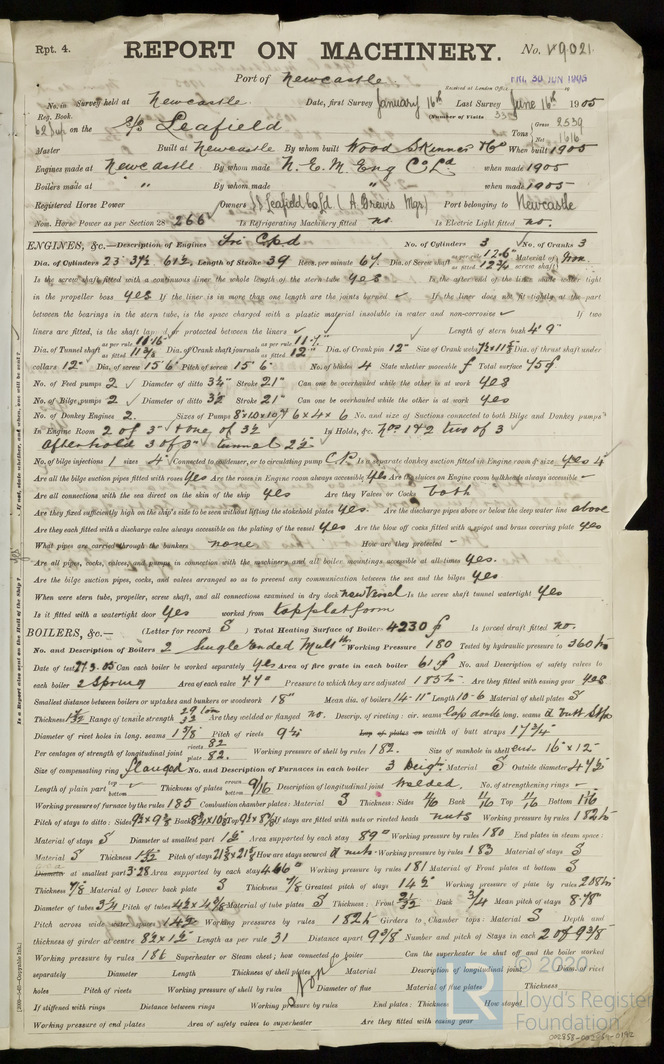 Rpt. 4.
REPORT ON MACHINERY.
No. 49021
Port of Newcastle
Received at London Office
FRI. 30 JUN 1905
No. in Survey held at Newcastle Date, first Survey January 16th Last Survey June 16th 1905
Reg. Book. (Number of Visits
on the S/S Leafield Tons Gross 2539 Net 1616
Master Built at Newcastle By whom built Wood Skinner & Co When built 1905
Engines made at Newcastle By whom made N. E. M. Eng Co Ld when made 1905
Boilers made at " By whom made " when made 1905
Registered Horse Power Owners SS Leafield Co Ld (A. Brewis Mgr) Port belonging to Newcastle
Nom. Horse Power as per Section 28 266 Is Refrigerating Machinery fitted no. Is Electric Light fitted no.
ENGINES, &c.—Description of Engines Tri Cpd No. of Cylinders 3 No. of Cranks 3
Dia. of Cylinders 23 37½ 61½ Length of Stroke 39 Revs. per minute 67 Dia. of Screw shaft as per rule 12.6" as fitted 12¾ Material of screw shaft Iron
Is the screw shaft fitted with a continuous liner the whole length of the stern tube yes Is the after end of the liner made water tight
in the propeller boss yes If the liner is in more than one length are the joints burned If the liner does not fit tightly at the part
between the bearings in the stern tube, is the space charged with a plastic material insoluble in water and non-corrosive If two
liners are fitted, is the shaft lapped or protected between the liners Length of stern bush 4' 9"
Dia. of Tunnel shaft as per rule as fitted 11⅝ Dia. of Crank shaft journals as per rule 11.7" as fitted 12" Dia. of Crank pin 12" Size of Crank webs Dia. of thrust shaft under
collars 12" Dia. of screw 15' 6" Pitch of screw 15' 6" No. of blades 4 State whether moveable Total surface 75
No. of Feed pumps 2 Diameter of ditto Stroke 21" Can one be overhauled while the other is at work yes
No. of Bilge pumps 2 Diameter of ditto 3½ Stroke 21" Can one be overhauled while the other is at work yes
No. of Donkey Engines 2 Sizes of Pumps 6 x 4 x 6 No. and size of Suctions connected to both Bilge and Donkey pumps
In Engine Room 2 of 3" & one of 3½ In Holds, &c. Nos 1 & 2 two of 3
After hold 3 of 3" tunnel 2½
No. of bilge injections 1 sizes 4" Connected to condenser, or to circulating pump C.P. Is a separate donkey suction fitted in Engine room & size yes 4
Are all the bilge suction pipes fitted with roses yes Are the roses in Engine room always accessible yes Are the sluices on Engine room bulkheads always accessible -
Are all connections with the sea direct on the skin of the ship yes Are they Valves or Cocks both
Are they fixed sufficiently high on the ship's side to be seen without lifting the stokehold plates yes Are the discharge pipes above or below the deep water line above
Are they each fitted with a discharge valve always accessible on the plating of the vessel yes Are the blow off cocks fitted with a spigot and brass covering plate yes
What pipes are carried through the bunkers none How are they protected -
Are all pipes, cocks, valves, and pumps in connection with the machinery and all boiler mountings accessible at all times yes.
Are the bilge suction pipes, cocks, and valves arranged so as to prevent any communication between the sea and the bilges yes
When were stern tube, propeller, screw shaft, and all connections examined in dry dock new vessel Is the screw shaft tunnel watertight yes
Is it fitted with a watertight door yes worked from top platform
BOILERS, &c.— (Letter for record S) Total Heating Surface of Boilers 4230 Is forced draft fitted no.
No. and Description of Boilers 2 Single Ended Mult Working Pressure 180 Tested by hydraulic pressure to 360
Date of test 27.3.05 Can each boiler be worked separately yes Area of fire grate in each boiler 61 No. and Description of safety valves to
each boiler 2 Spring Area of each valve Pressure to which they are adjusted 185 Are they fitted with easing gear yes
Smallest distance between boilers or uptakes and bunkers or woodwork 18" Mean dia. of boilers 14-11" Length 10-6 Material of shell plates S
Thickness Range of tensile strength Are they welded or flanged no. Descrip. of riveting: cir. seams lap double long. seams d butt
Diameter of rivet holes in long. seams 1 5/8 Pitch of rivets 9¼ width of butt straps 17¾"
Per centages of strength of longitudinal joint rivets 82 plate 82. Working pressure of shell by rules 182. Size of manhole in shell 16" x 12"
Size of compensating ring flanged No. and Description of Furnaces in each boiler 3 Material S Outside diameter 47½
Length of plain part top bottom Thickness of plates crown bottom 9/16 Description of longitudinal joint welded. No. of strengthening rings -
Working pressure of furnace by the rules 185 Combustion chamber plates: Material S Thickness: Sides Back 11/16 Top 11/16 Bottom
Pitch of stays to ditto: Sides Back Top If stays are fitted with nuts or riveted heads nuts Working pressure by rules 182
Material of stays S Diameter at smallest part Area supported by each stay 89" Working pressure by rules 180 End plates in steam space:
Material S Thickness Pitch of stays How are stays secured d nuts Working pressure by rules 183 Material of stays S
at smallest part 3.28 Area supported by each stay 466" Working pressure by rules 181 Material of Front plates at bottom S
Thickness 7/8 Material of Lower back plate S Thickness 7/8 Greatest pitch of stays 14½ Working pressure of plate by rules 208
Diameter of tubes 3¼ Pitch of tubes Material of tube plates S Thickness: Front Back 3/4 Mean pitch of stays
Pitch across wide water spaces 14½ Working pressures by rules 182 Girders to Chamber tops: Material S Depth and
thickness of girder at centre Length as per rule 31 Distance apart 9⅜ Number and pitch of Stays in each 2 of 9⅜
Working pressure by rules Superheater or Steam chest; how connected to boiler Can the superheater be shut off and the boiler worked
None
separately Diameter Length Thickness of shell plates Material Description of longitudinal joint Diam. of rivet
holes Pitch of rivets Working pressure of shell by rules Diameter of flue Material of flue plates Thickness
If stiffened with rings Distance between rings Working pressure by rules End plates: Thickness How stayed
Working pressure of end plates Area of safety valves to superheater Are they fitted with easing gear
Is a Report also sent on the Hull of the Ship? yes If not, state whether, and when, one will be sent?
© 2020
Lloyd's Register
Foundation